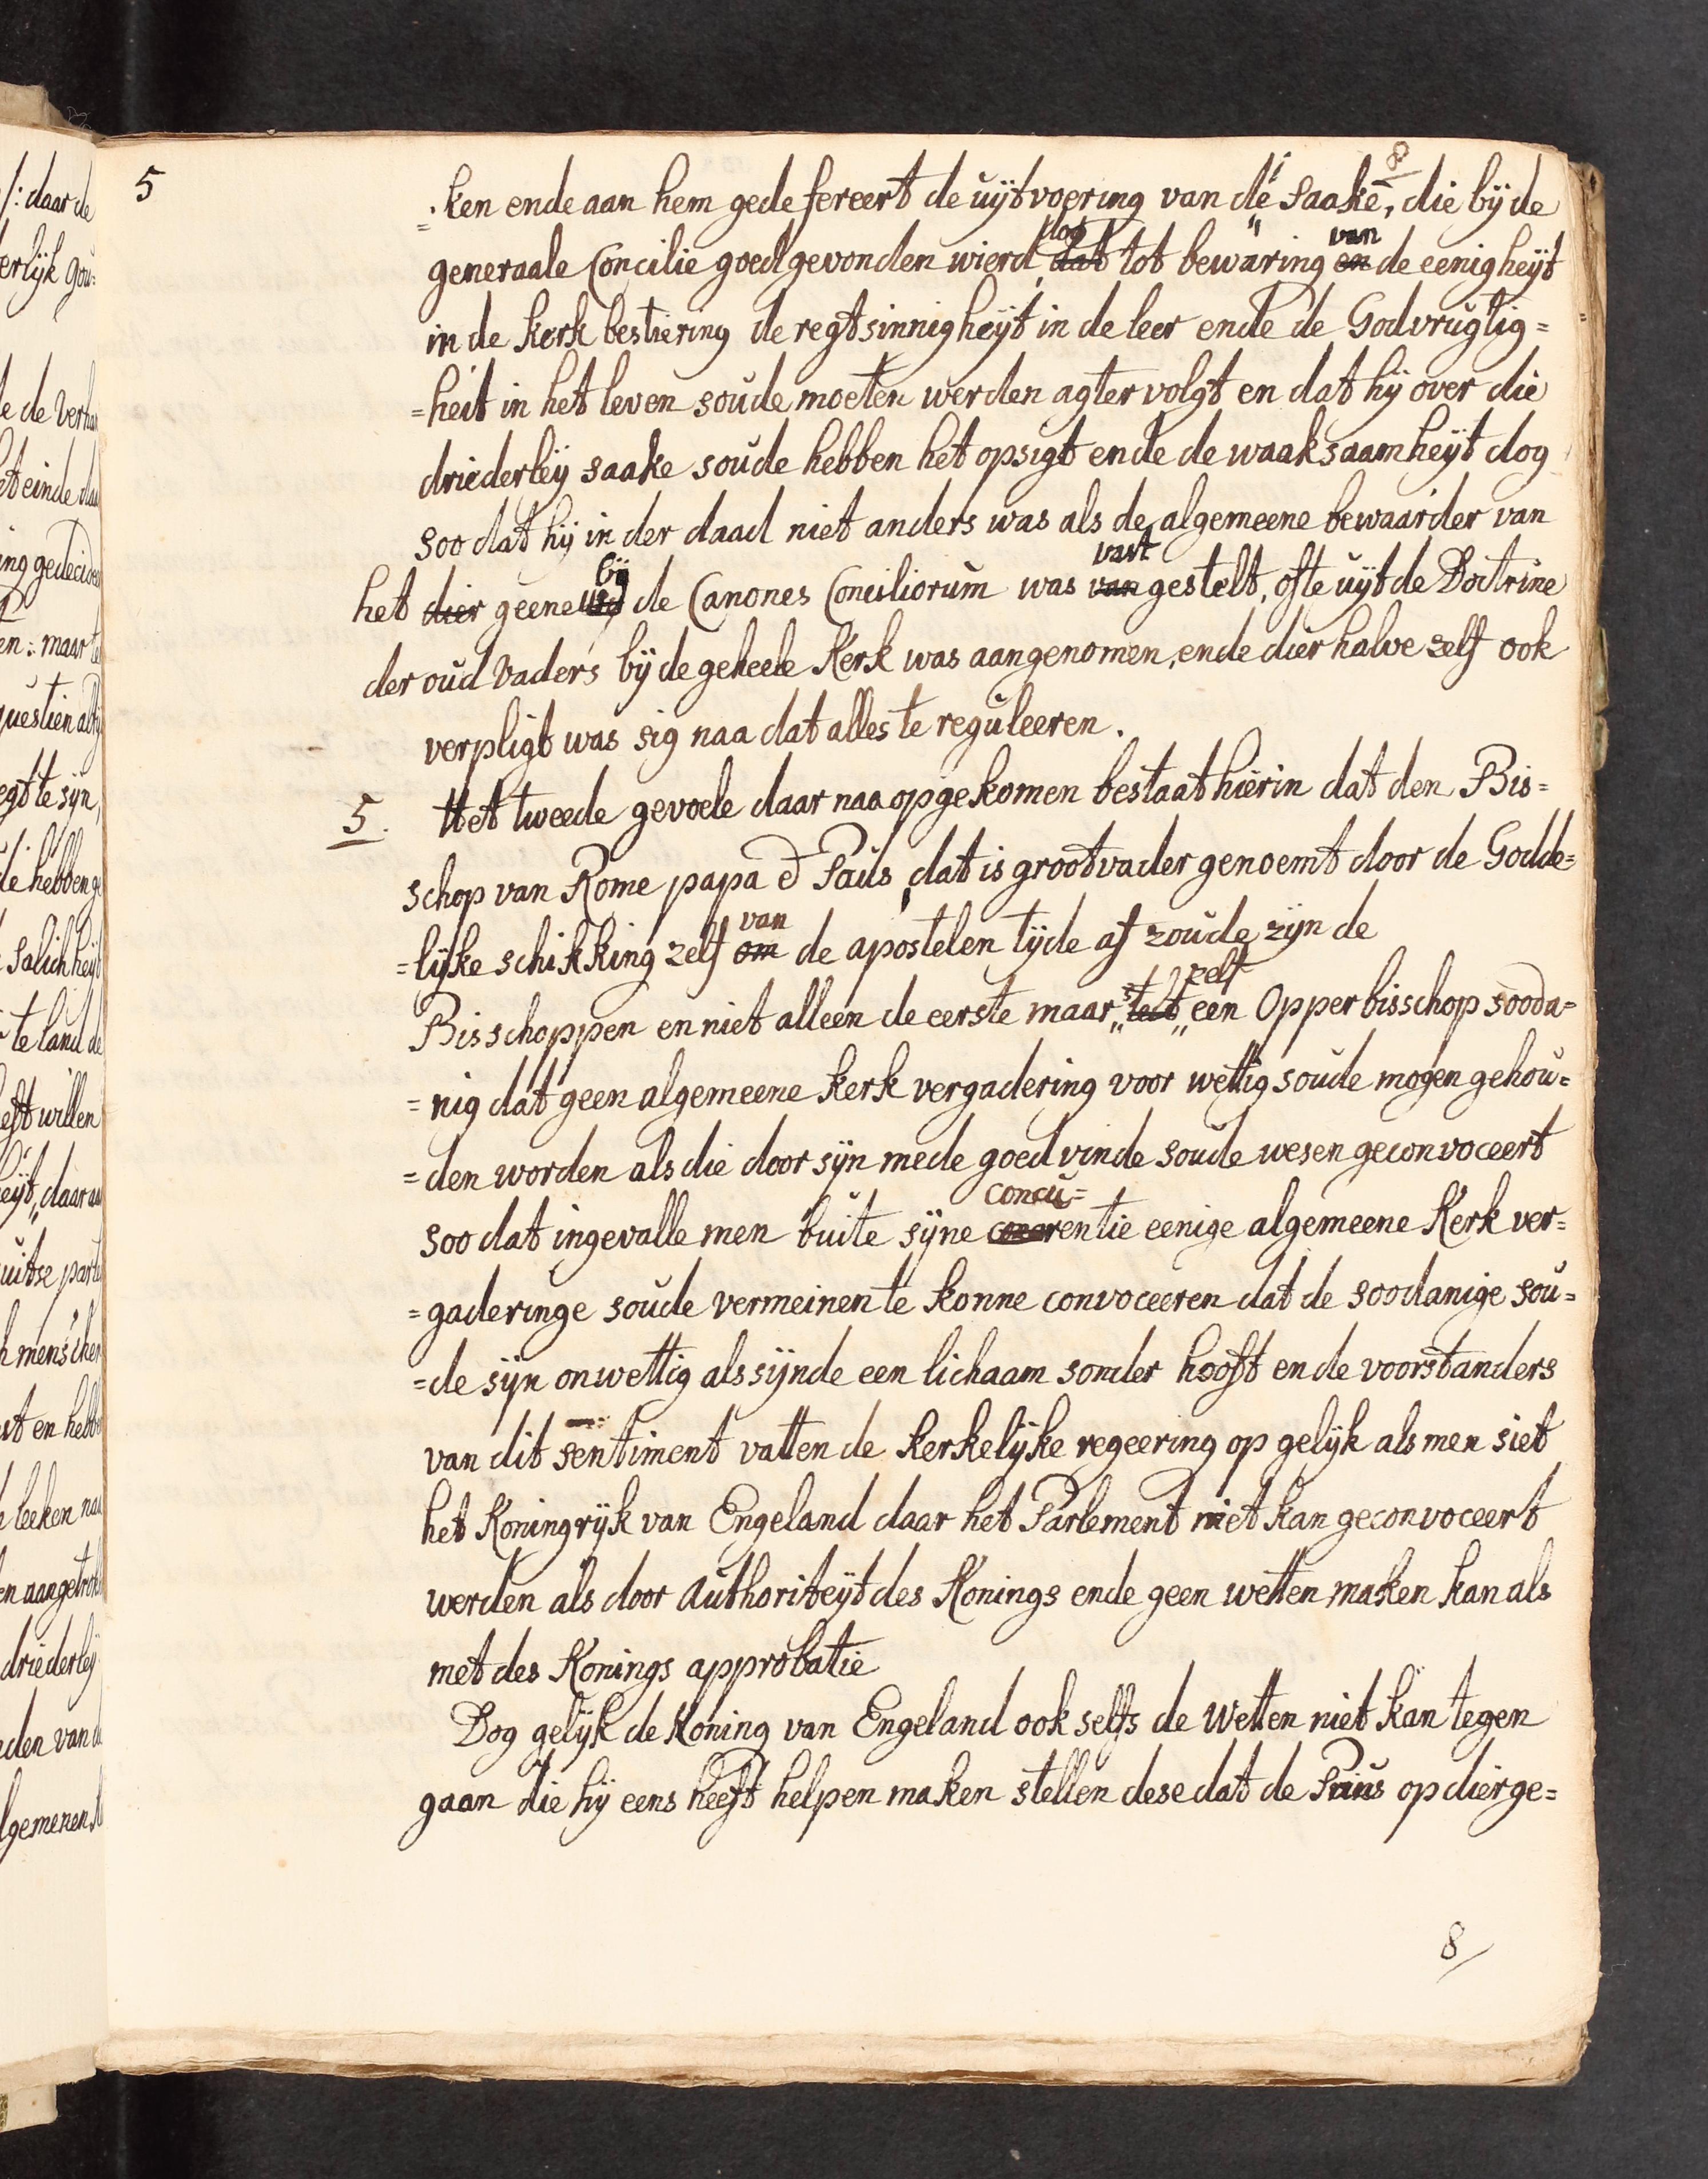 5
8
=ken ende aan hem gedefereert de uÿtvoering van de saake, die bÿ de
dog
van
generaale Concilie goedgevonden wierd, dat tot bewaring en de eenigheÿt
in de kerk bestiering de regtsinnigheÿt in de leer ende de Godvrugtig=
=heit in het leven soude moeten werden agtervolgt en dat hÿ over die
driederleÿ saake soude hebben het opsigt ende de waaksaamheÿt dog
soo dat hÿ in der daad niet anders was als de algemeene bewaarder van
bÿ
vast
het dier geene uÿt de Canones Conciliorum was van gestelt, ofte uÿt de Doctrine
der oud vaders bÿ de geheele Kerk was aangenomen, ende dierhalve zelf ook
verpligt was sig naa dat alles te reguleeren.
5. Het tweede gevoele daar naa opgekomen bestaat hierin dat den Bis=
schop van Rome papa of Paus, dat is grootvader genoemt door de Godde=
van
=lÿke schikking zelf om de apostelen tÿde af zoude zÿn de
zelf
Bisschoppen en niet alleen de eerste maar een Opperbisschop sooda=
=nig dat geen algemeene kerk vergadering voor wettig soude mogen gehou=
=den worden als die door sÿn mede goedvinde soude wesen geconvoceert
concu=
soo dat ingevalle men buite sÿne rentie eenige algemeene Kerk ver=
=gaderinge soude vermeinen te konne convoceeren dat de soodanige sou=
=de sÿn onwettig als sÿnde een lichaam sonder hooft ende voorstanders
van dit sentiment vatten de kerkelÿke regeering op gelÿk als men siet
het Koningrÿk van Engeland daar het Parlement niet kan geconvoceert
werden als door Authoriteÿt des Konings ende geen wetten maken kan als
met des Konings approbatie
Dog gelÿk de Koning van Engeland ook selfs de Wetten niet kan tegen
gaan die hÿ eens heeft helpen maken stellen dese dat de Paus op dierge=
8/